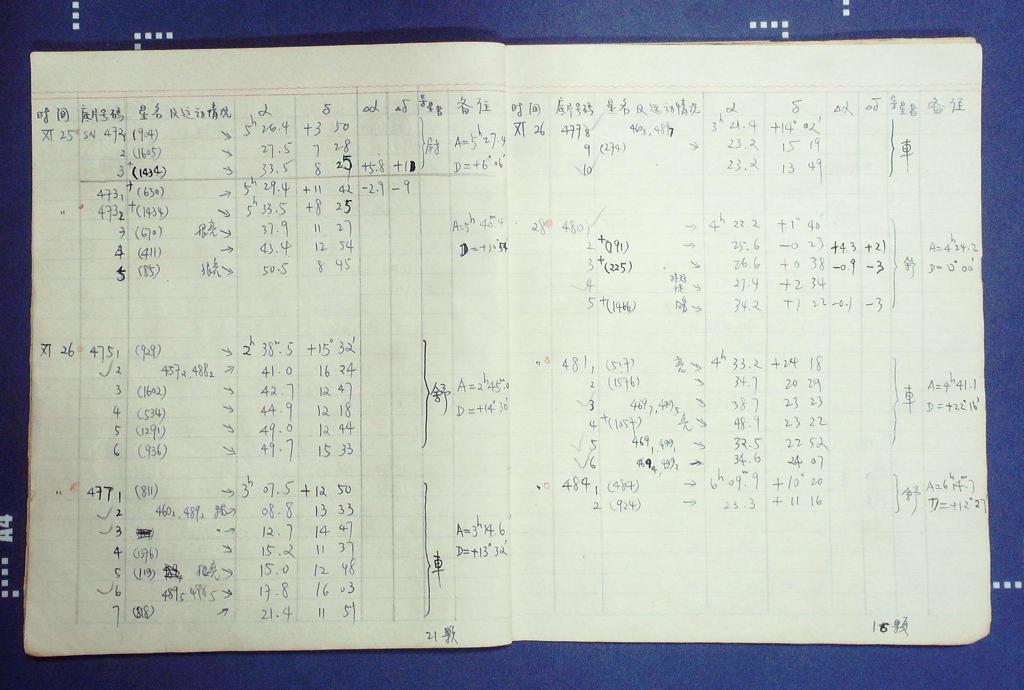 时间 底片号码 星名及运动情况 α δ Δα Δδ 量星者 备注
XI 25 SN 473₁ (904) → 5ʰ 26.4 +3 50 A=5ʰ27.4
2 (1605) → 27.5 7 28
3 +(1434) → 33.5 8 25 +5.8 D=+6°06'
473₁ +(630) → 5ʰ 29.4 +11 42 -2.9 -9
" 473₂ +(1434) → 5ʰ 33.5 +8 25
3 (670) 很亮 → 37.9 11 27
4 (411) → 43.4 12 54
5 (85) 很亮 → 50.5 8 45
XI 26 475₁ (929) → 2ʰ 38.5 +15° 32'
✓2 457₂,488₂ → 41.0 16 24
3 (1602) → 42.7 12 47 舒 A=2ʰ45ᵐ.0
4 (534) → 44.9 12 18 D=+14°30'
5 (1291) → 49.0 12 44
6 (936) → 49.7 15 33
" 477₁ (811) → 3ʰ 07.5 +12 50
✓2 460₂,489₂ → 08.8 13 33
✓3 → 12.7 14 47 A=3ʰ14.6
4 (1376) → 15.2 11 37 D=+13°32'
5 (119) 很亮 → 15.0 12 48 車
✓6 489₅ 498₅ → 17.8 16 03
7 → 21.4 11 51
21颗
时间 底片号码 星名及运动情况 α δ Δα Δδ 量星者 备注
XI 26 477₈ 460₃,489₇ 3ʰ 21.4 +14° 02'
9 (274) → 23.2 15 19 車
10 23.2 13 49
28 480₁ → 4ʰ 22.2 +1° 40'
2 +(191) → 25.6 -0 23 +4.3 +21 A=4ʰ24.2
3 +(225) → 26.6 +0 38 -0.9 -3 舒 D=0°00'
4 → 27.4 +2 34
5 +(1466) → 34.2 +1 22 -0.1 -3
" 481₁ (517) 亮 → 4ʰ 33.2 +24 18
2 (1576) → 34.7 20 29 A=4ʰ41.1
✓3 469₃,499₅ → 38.7 23 23 車 D=+22°16'
4 +(1057) 亮 → 48.9 23 22
✓5 469₁,499₁ → 32.5 22 52
✓6 → 34.6 24 07
" 484₁ (484) → 6ʰ 09ᵐ.9 +10° 20 舒 A=6ʰ14ᵐ.7
2 (924) → 23.3 +11 16 D=+12°27
18颗